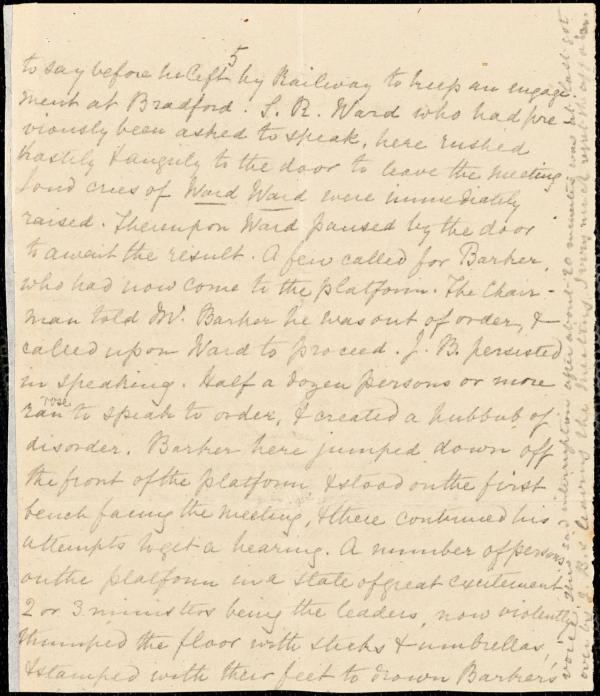 5
to say before he left by Railway to keep an engage-
ment at Bradford. S. R. Ward who had pre-
viously been asked to speak, here rushed
hastily & angrily to the door to leave the meeting
loud cries of Ward Ward were immediately
raised. Thereupon Ward paused by the door
to await the result. A few called for Barker,
who had now come to the platform. The Chair-
man told Mr. Barker he was out of order, &
called upon Ward to proceed. J. B. persisted
in speaking. Half a dozen persons or more
rose
ran to speak to order, & created a hubbub of
disorder. Barker here jumped down off
the front of the platform & stood on the first
bench facing the meeting, & there continued his
attempts to get a hearing. A number of persons
on the platform in a state of great excitement
2 or 3 ministers being the leaders, now violently
thumped the floor with sticks & umbrellas,
& stamped with their feet to drown Barker's
voice. This sad interruption after about 20 minutes was at last got
over by J. B.'s leaving the meeting. I very much regret the affair.